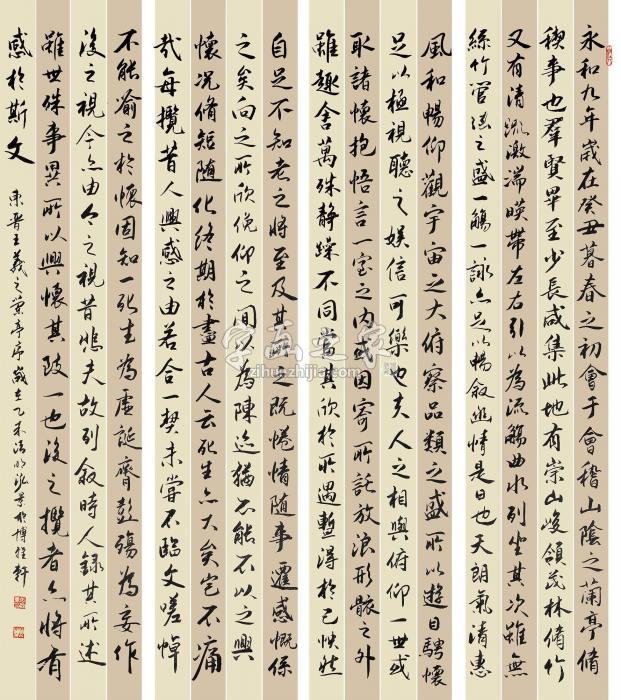 永和九年歲在癸丑暮春之初會于會稽山陰之蘭亭脩
稧事也羣賢畢至少長咸集此地有崇山峻領茂林脩竹
又有清流激湍暎帶左右引以為流觴曲水列坐其次雖無
絲竹管弦之盛一觴一詠亦足以暢敘幽情是日也天朗氣清惠
風和暢仰觀宇宙之大俯察品類之盛所以遊目騁懷
足以極視聽之娛信可樂也夫人之相與俯仰一世或
取諸懷抱悟言一室之內或因寄所託放浪形骸之外
雖趣舍萬殊静躁不同當其欣於所遇暫得於己怏然
自足不知老之將至及其所之既惓情隨事遷感慨係
之矣向之所欣俛仰之間以為陳迹猶不能不以之興
懷況脩短隨化終期於盡古人云死生亦大矣豈不痛
哉每攬昔人興感之由若合一契未嘗不臨文嗟悼
不能喻之於懷固知一死生為虛誕齊彭殤為妄作
後之視今亦由今之視昔悲夫故列敘時人錄其所述
雖世殊事異所以興懷其致一也後之攬者亦將有
感於斯文
東晉王羲之蘭亭序歲在乙未清明泓景於博雅軒
字画之家
zihuazhijia.com